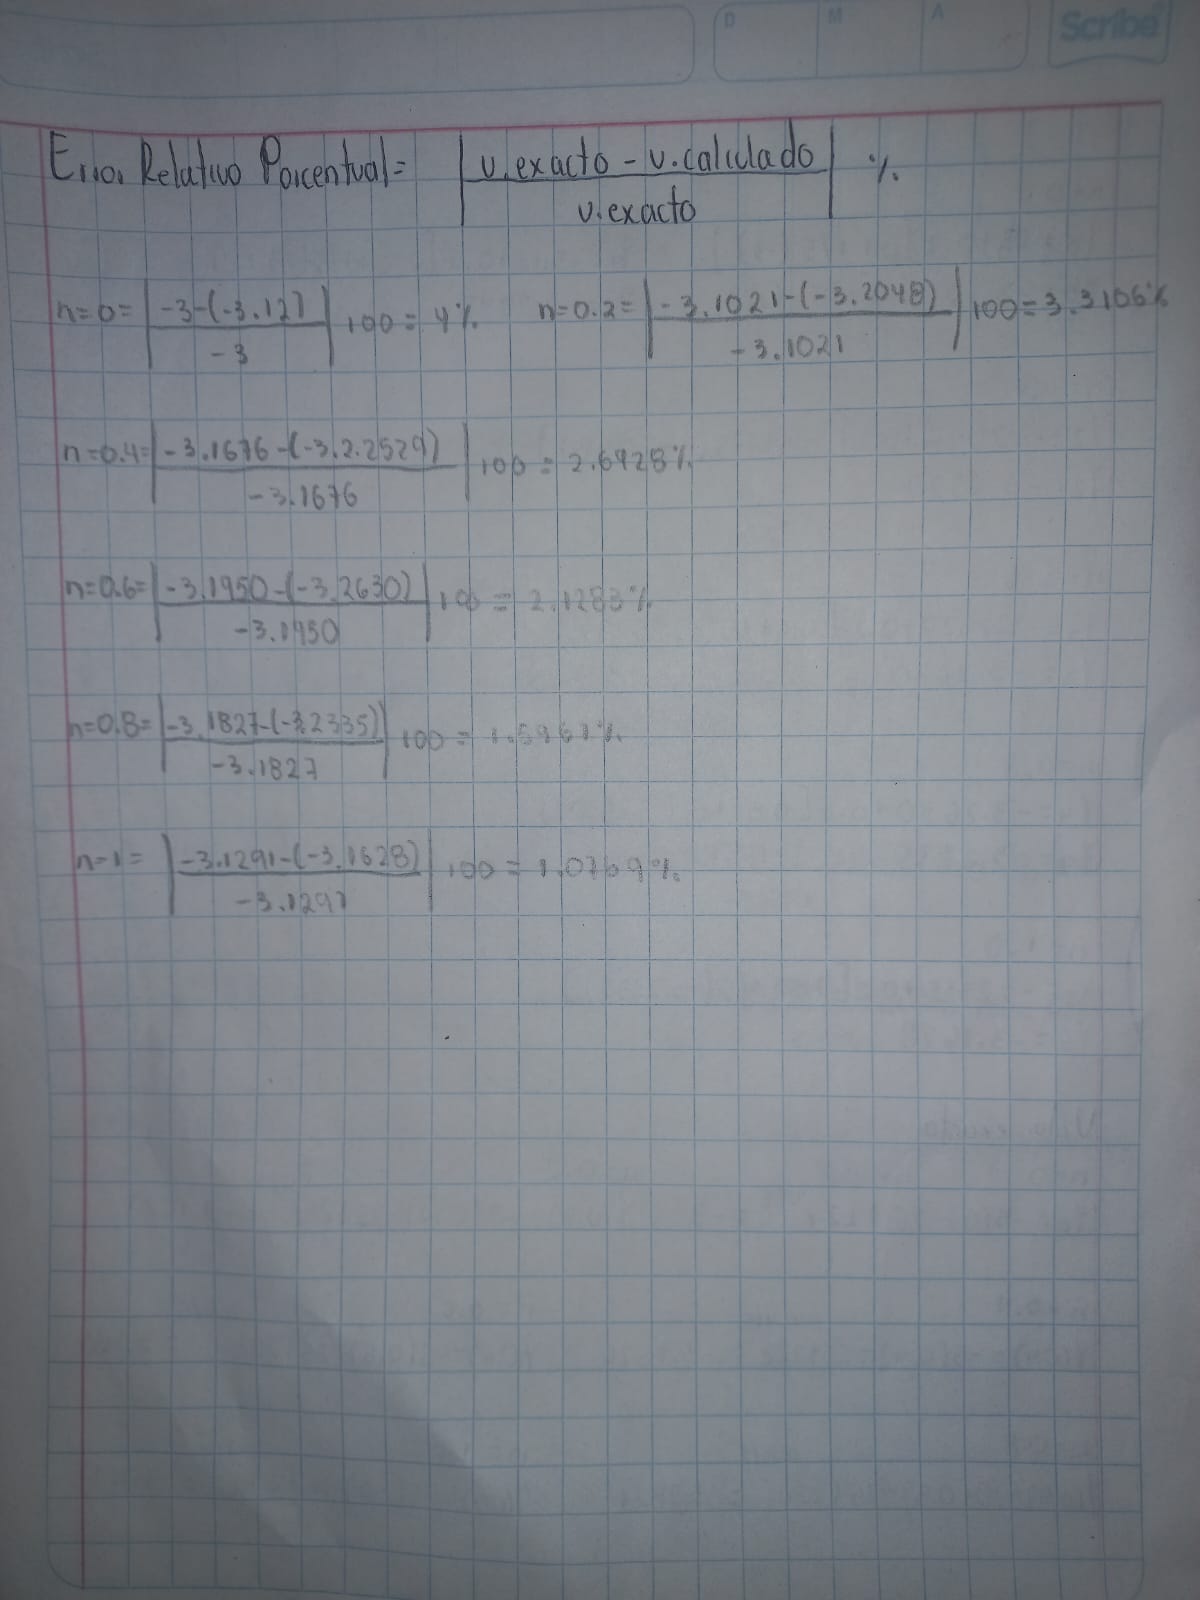 D M A Scribe
Error Relativo Porcentual= | v.exacto - v.calculado / v.exacto | %
n=0= | -3-(-3.12) / -3 | 100 = 4% n=0.2= | -3.1021-(-3.2048) / -3.1021 | 100=3.3106%
n=0.4= | -3.1676-(-3.2.2529) / -3.1676 | 100 = 2.6928%
n=0.6= | -3.1950-(-3.2630) / -3.1950 | 100 = 2.1283%
n=0.8= | -3.1827-(-3.2335) / -3.1827 | 100 = 1.5961%
n=1= | -3.1291-(-3.1628) / -3.1291 | 100 = 1.0769%